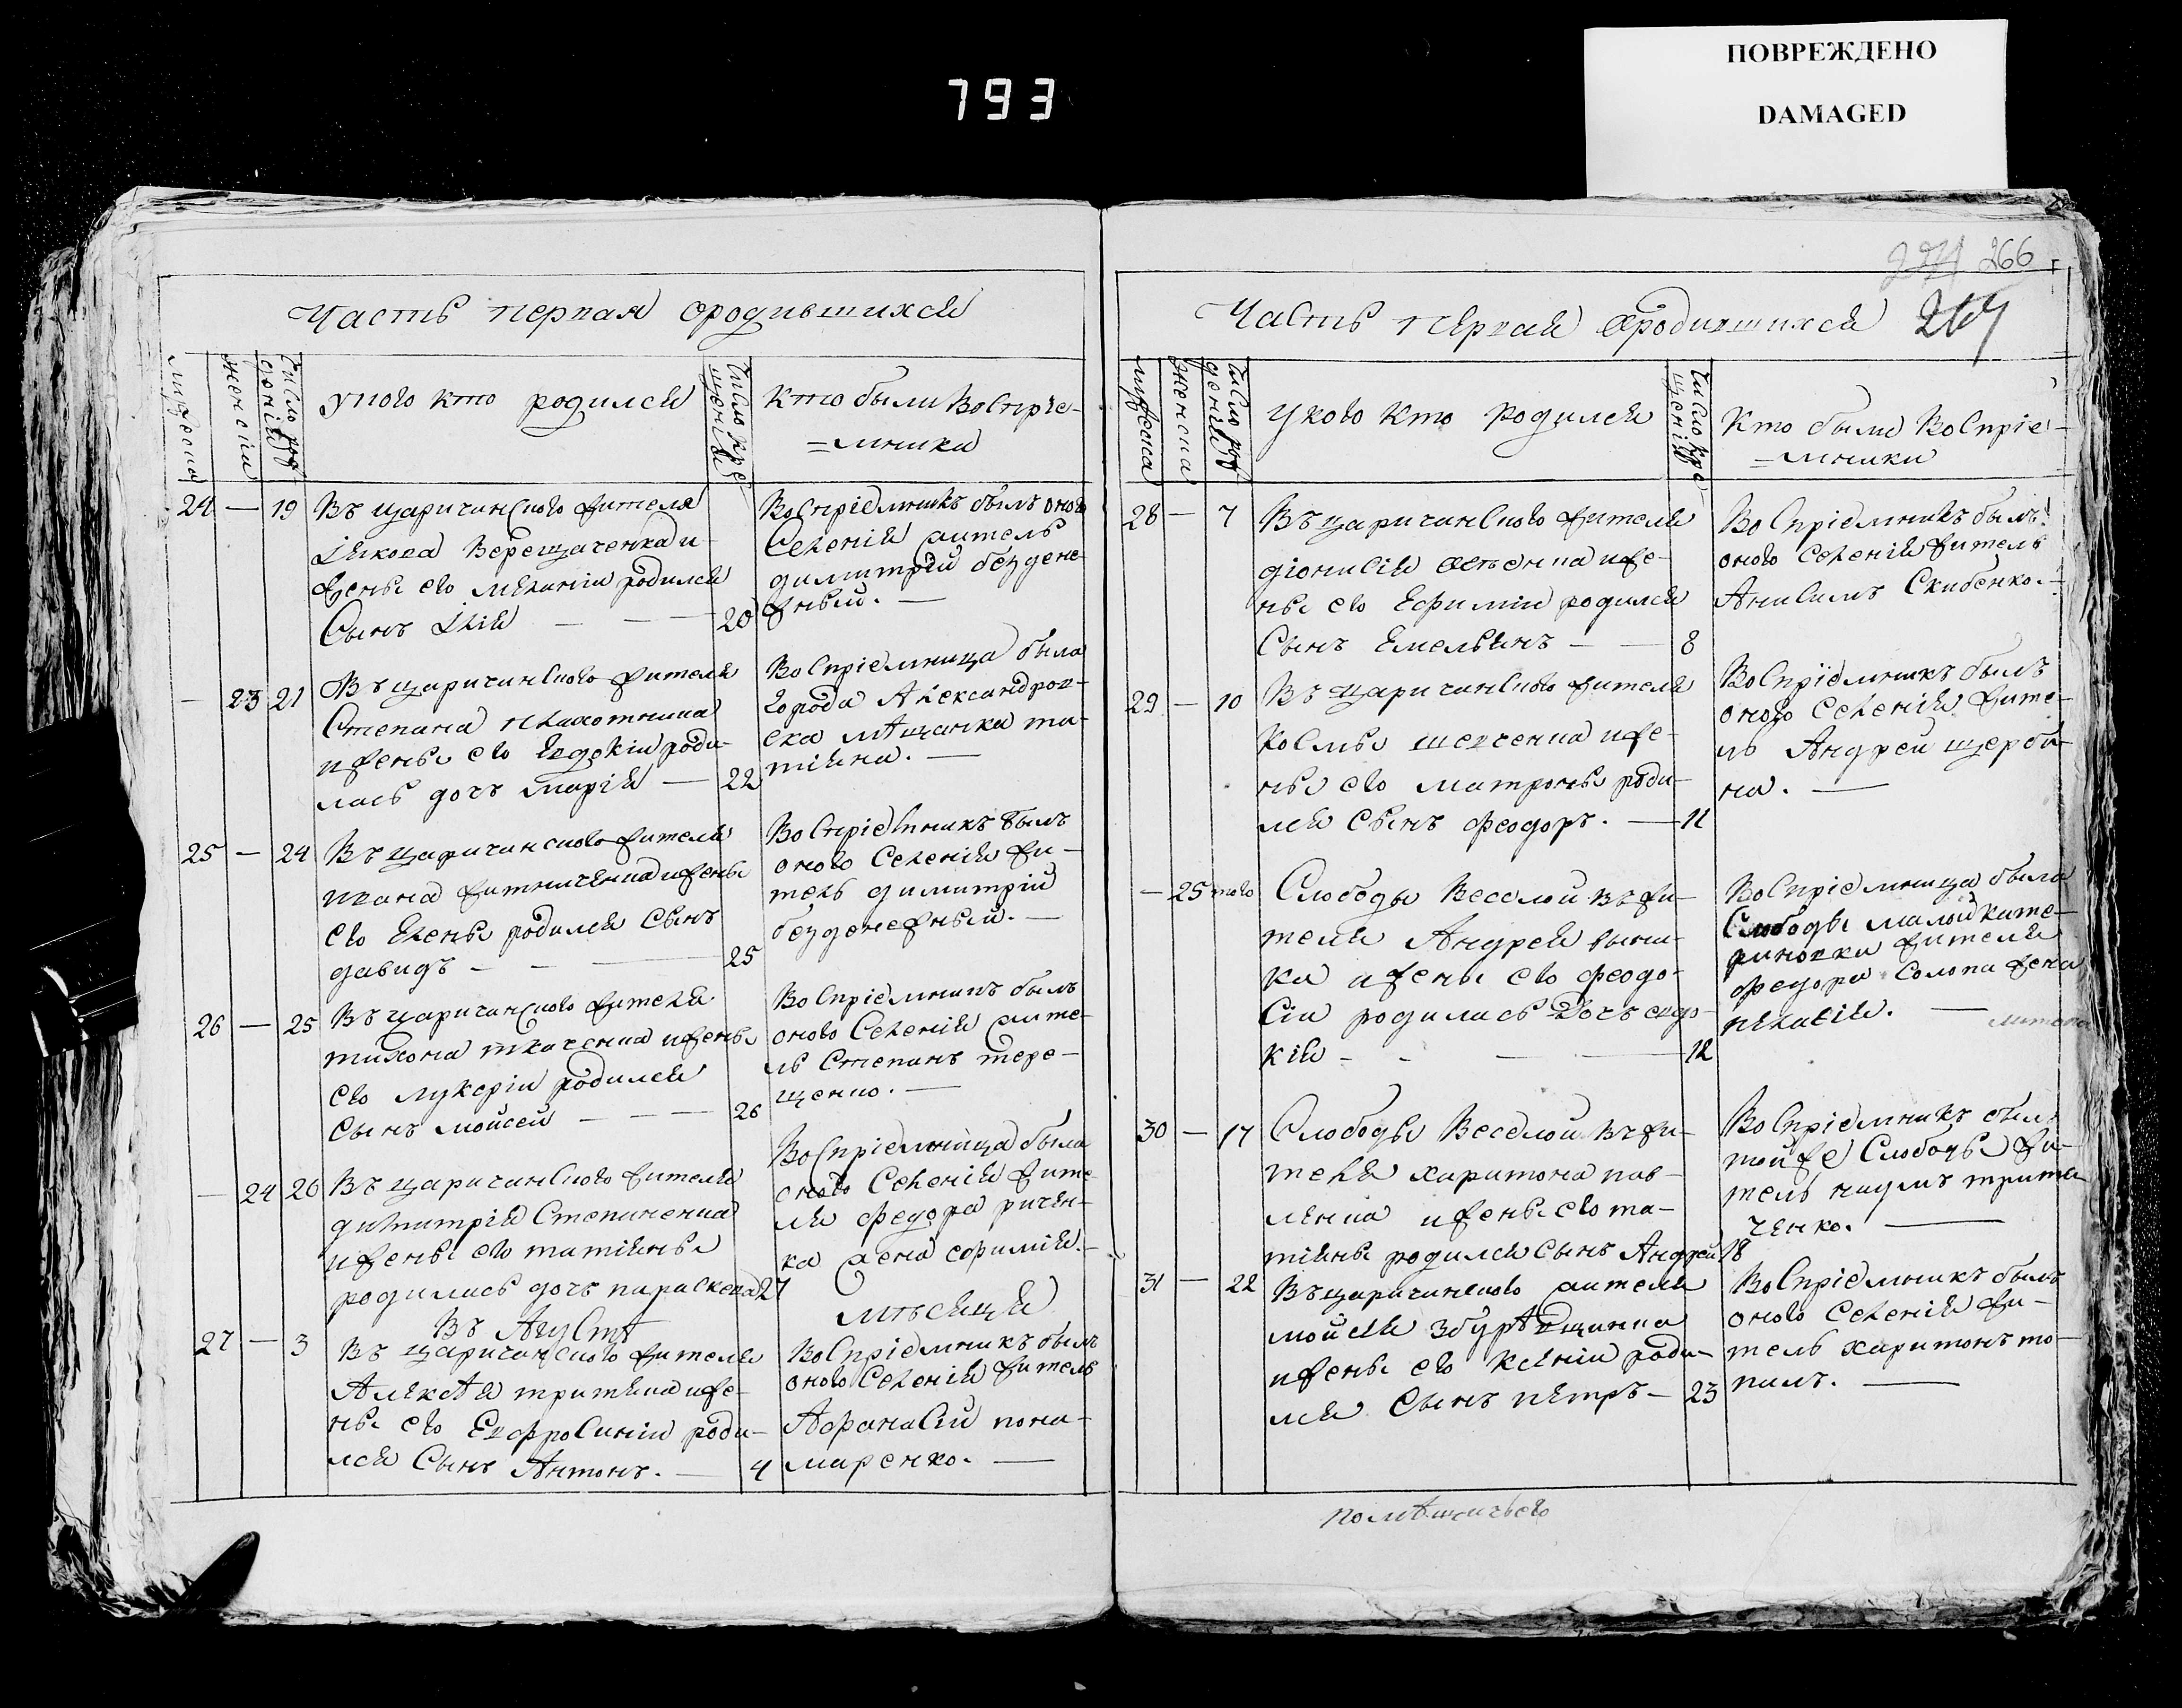 ПОВРЕЖДЕНО
DAMAGED
793
266
Часть первая ородившихся
мужеска
женскія
Число рож
деній
Число кре
щенія
у кого кто родился
Кто были Воспріе-
=мники
24 — 19 Въ царичанского жителя
Іякова Верещаченка и
жены его Меланіи родился
Сынъ Ілія — — 20
Воспріемникъ былъ оного
Селенія житель
димитрій бездене
жный. —
— 23 21 Въ царичанского жителя
Степана плахотника
и жены его Евдокіи роди-
лась дочъ Марія — 22
Воспріемница была
города Александров-
ска мѣщанка та-
тіяна. —
25 — 24 Въ царичанского жителя
ивана житниченка и жены
его Елены родился Сынъ
давидъ — — 25
Воспріемникъ былъ
оного Селенія жи-
тель димитрій
безденежный. —
26 — 25 Въ царичанского жителя
тихона ткаченка и жены
его лукеріи родился
Сынъ мойсей — — — 26
Воспріемникъ былъ
оного Селенія жите-
ль Степанъ тере-
щенко. —
— 24 26 Въ царичанского жителя
димитрія Степаненка
и жены его татіяны
родилась дочъ параскева 27
Воспріемница была
оного Селенія жите-
ля федора
жена ефимія. —
Въ Августѣ
мѣсяцѣ
27 — 3 Въ царичанского жителя
Алексѣя тритяка и же-
ны его Евфросиніи роди-
лся Сынъ Антонъ. — 4
Воспріемникъ былъ
оного Селенія житель
Афанасій пона-
маренко. —
Часть первая ородившихся
мужеска
женска
Число рож
деній
Число кре
щеній
У кого Кто Родился
Кто были Воспріе-
=мники
28 — 7 Въ царичанского жителя
діонисія и же-
ны его Ефиміи родился
Сынъ Емельянъ — — 8
Воспріемникъ былъ
оного Селенія житель
Анисимъ Скибенко. —
29 — 10 Въ царичанского жителя
Космы шевченка и же-
ны его матроны роди-
лся Сынъ феодоръ. — 11
Воспріемникъ былъ
оного Селенія жите-
ль Андрей щерби-
на. —
— 25 того Слободы Веселой въ жи-
теля Андрея
ка и жены его феодо-
сіи родилась Дочъ евдо-
кія — — 12
Воспріемница была
Слободы малой кате-
риновки жителя
федора Солопа жена
пелагія. —
30 — 17 Слободы Веселой въ жи-
теля харитона пав-
ленка и жены его та-
тіяны родился Сынъ Андрей 18
Воспріемникъ былъ
той же Слободы жи-
тель наумъ тритя
ченко. —
31 — 22 Въ царичанского жителя
мойсея
и жены его Ксеніи роди-
лся Сынъ пётръ — 23
Воспріемникъ былъ
оного Селенія жи-
тель харитонъ то-
пилъ. —
помѣщичьего